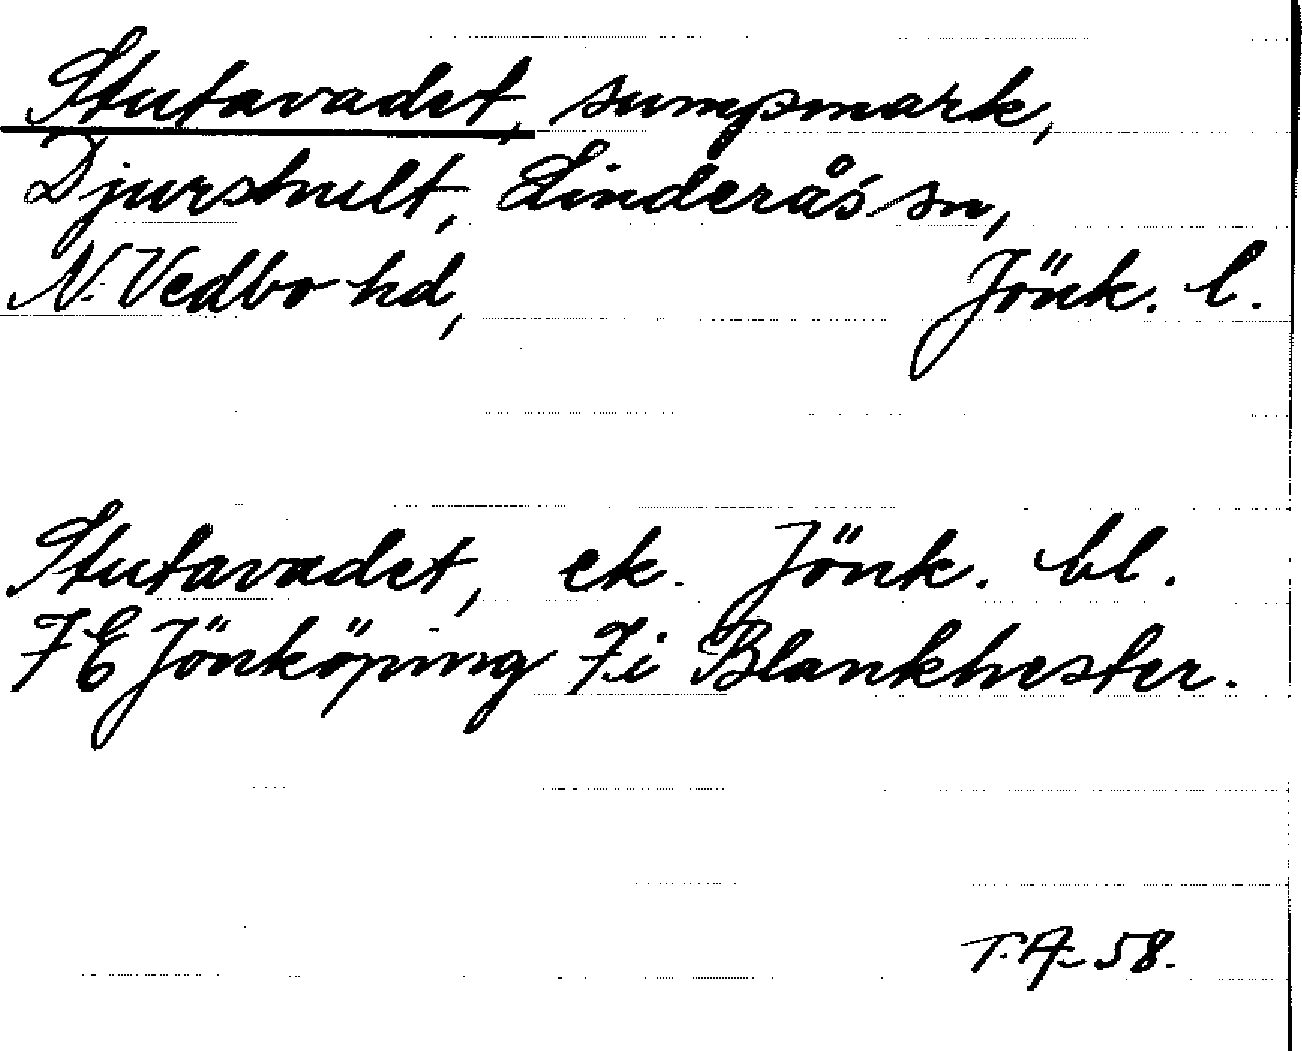 Stutavadet, sumpmark,
Djurshult, Linderås sn,
N. Vedbo hd, Jönk. l.
Stutavadet, ek. Jönk. bl.
7E Jönköping 7i Blankhester.
T.A. 58.